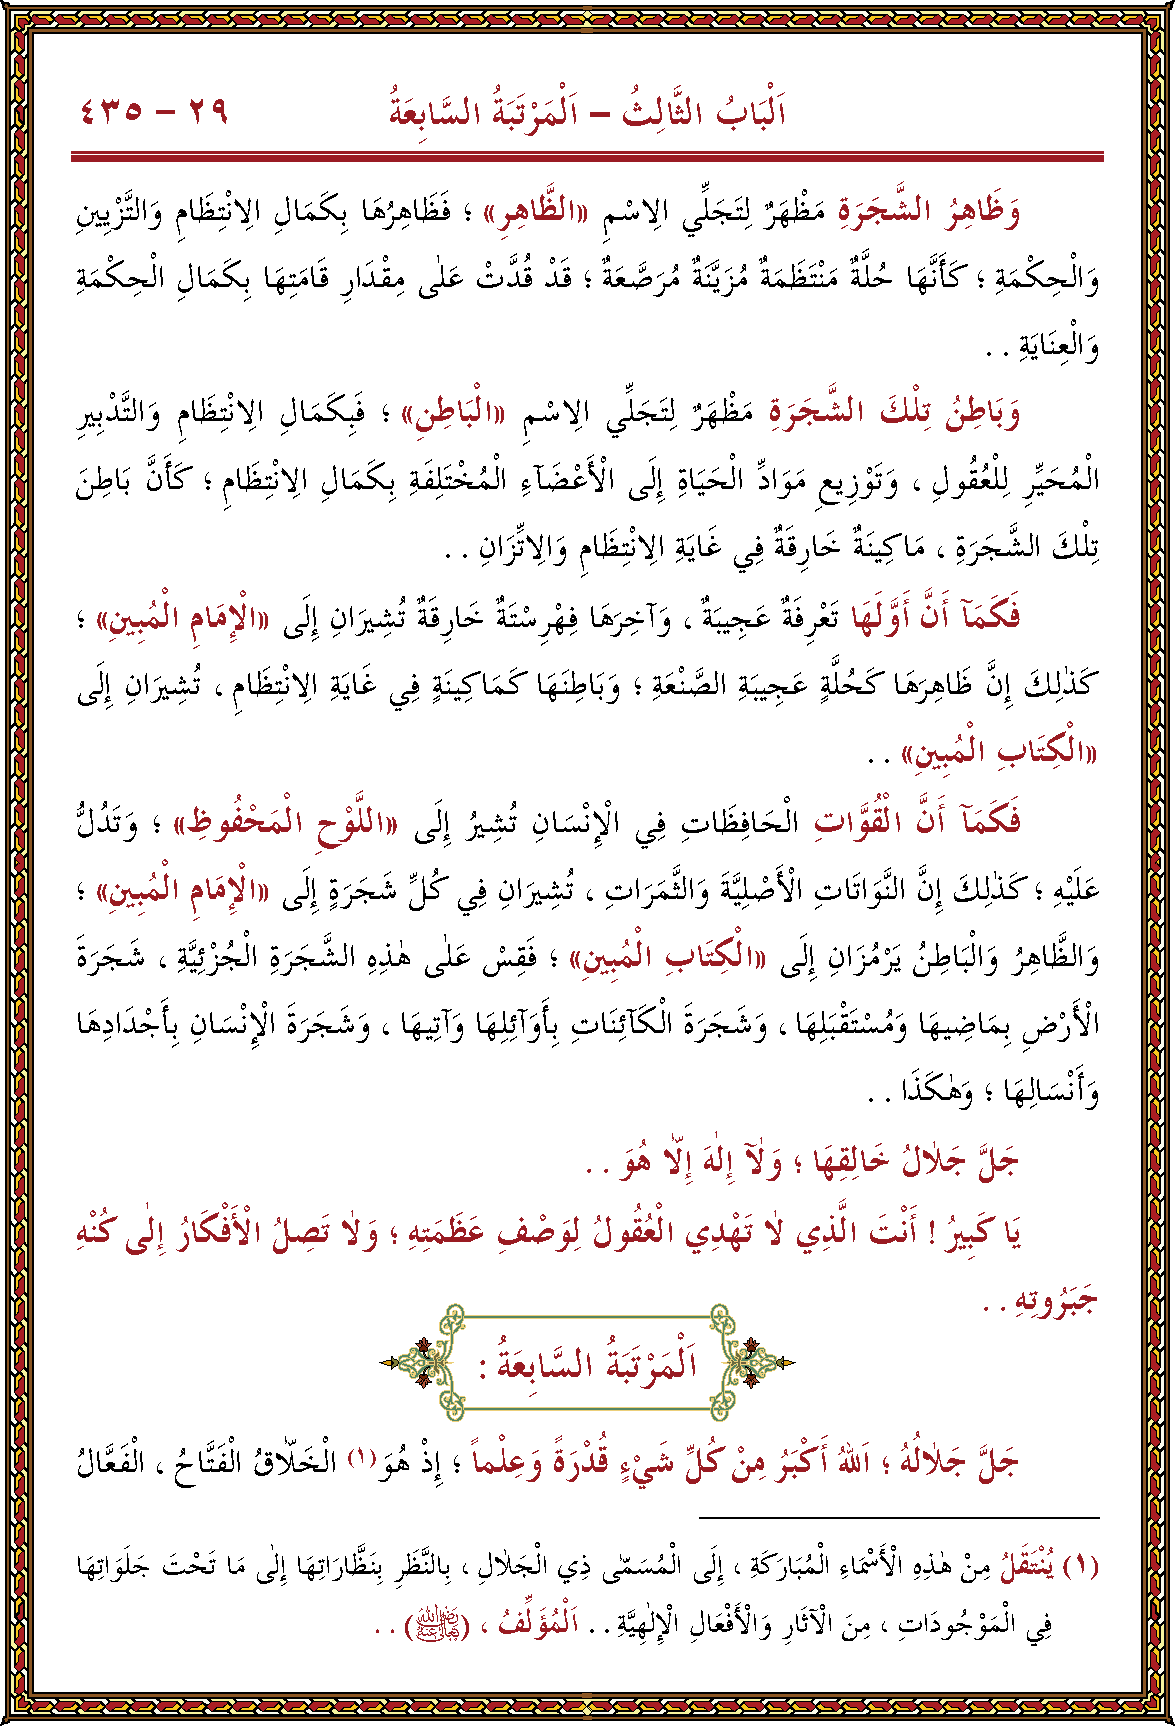 اَلْبَابُ الثَّالِثُ – اَلْمَرْتَبَةُ السَّابِعَةُ ٢٩ – ٤٣٥
وَظَاهِرُ الشَّجَرَةِ مَظْهَرٌ لِتَجَلِّي الِاسْمِ «الظَّاهِرِ» ؛ فَظَاهِرُهَا بِكَمَالِ الِانْتِظَامِ وَالتَّزْيِينِ
وَالْحِكْمَةِ ؛ كَأَنَّهَا حُلَّةٌ مُنْتَظَمَةٌ مُزَيَّنَةٌ مُرَصَّعَةٌ ؛ قَدْ قُدَّتْ عَلٰى مِقْدَارِ قَامَتِهَا بِكَمَالِ الْحِكْمَةِ
وَالْعِنَايَةِ . .
وَبَاطِنُ تِلْكَ الشَّجَرَةِ مَظْهَرٌ لِتَجَلِّي الِاسْمِ «الْبَاطِنِ» ؛ فَبِكَمَالِ الِانْتِظَامِ وَالتَّدْبِيرِ
الْمُحَيِّرِ لِلْعُقُولِ ، وَتَوْزِيعِ مَوَادِّ الْحَيَاةِ إِلَى الْأَعْضَآءِ الْمُخْتَلِفَةِ بِكَمَالِ الِانْتِظَامِ ؛ كَأَنَّ بَاطِنَ
تِلْكَ الشَّجَرَةِ ، مَاكِينَةٌ خَارِقَةٌ فِي غَايَةِ الِانْتِظَامِ وَالِاتِّزَانِ . .
فَكَمَآ أَنَّ أَوَّلَهَا تَعْرِفَةٌ عَجِيبَةٌ ، وَآخِرَهَا فِهْرِسْتَةٌ خَارِقَةٌ تُشِيرَانِ إِلَى «الْإِمَامِ الْمُبِينِ» ؛
كَذٰلِكَ إِنَّ ظَاهِرَهَا كَحُلَّةٍ عَجِيبَةِ الصَّنْعَةِ ؛ وَبَاطِنَهَا كَمَاكِينَةٍ فِي غَايَةِ الِانْتِظَامِ ، تُشِيرَانِ إِلَى
«الْكِتَابِ الْمُبِينِ» . .
فَكَمَآ أَنَّ الْقُوَّاتِ الْحَافِظَاتِ فِي الْإِنْسَانِ تُشِيرُ إِلَى «اللَّوْحِ الْمَحْفُوظِ» ؛ وَتَدُلُّ
عَلَيْهِ ؛ كَذٰلِكَ إِنَّ النَّوَاتَاتِ الْأَصْلِيَّةَ وَالثَّمَرَاتِ ، تُشِيرَانِ فِي كُلِّ شَجَرَةٍ إِلَى «الْإِمَامِ الْمُبِينِ» ؛
وَالظَّاهِرُ وَالْبَاطِنُ يَرْمُزَانِ إِلَى «الْكِتَابِ الْمُبِينِ» ؛ فَقِسْ عَلٰى هٰذِهِ الشَّجَرَةِ الْجُزْئِيَّةِ ، شَجَرَةَ
الْأَرْضِ بِمَاضِيهَا وَمُسْتَقْبَلِهَا ، وَشَجَرَةَ الْكَآئِنَاتِ بِأَوَآئِلِهَا وَآتِيهَا ، وَشَجَرَةَ الْإِنْسَانِ بِأَجْدَادِهَا
وَأَنْسَالِهَا ؛ وَهٰكَذَا . .
جَلَّ جَلَالُ خَالِقِهَا ؛ وَلَآ إِلٰهَ إِلَّا هُوَ . .
يَا كَبِيرُ ! أَنْتَ الَّذِي لَا تَهْدِي الْعُقُولُ لِوَصْفِ عَظَمَتِهِ ؛ وَلَا تَصِلُ الْأَفْكَارُ إِلٰى كُنْهِ
جَبَرُوتِهِ . .
اَلْمَرْتَبَةُ السَّابِعَةُ :
جَلَّ جَلَالُهُ ؛ اَللّٰهُ أَكْبَرُ مِنْ كُلِّ شَيْءٍ قُدْرَةً وَعِلْماً ؛ إِذْ هُوَ (١) الْخَلَّاقُ الْفَتَّاحُ ، الْفَعَّالُ
(١) يُنْتَقَلُ مِنْ هٰذِهِ الْأَسْمَاءِ الْمُبَارَكَةِ ، إِلَى الْمُسَمّٰى ذِي الْجَلَالِ ، بِالنَّظَرِ بِنَظَّارَاتِهَا إِلٰى مَا تَحْتَ جَلَوَاتِهَا
فِي الْمَوْجُودَاتِ ، مِنَ الْآثَارِ وَالْأَفْعَالِ الْإِلٰهِيَّةِ . . اَلْمُؤَلِّفُ ، (رضي الله تعالى عنه) . .